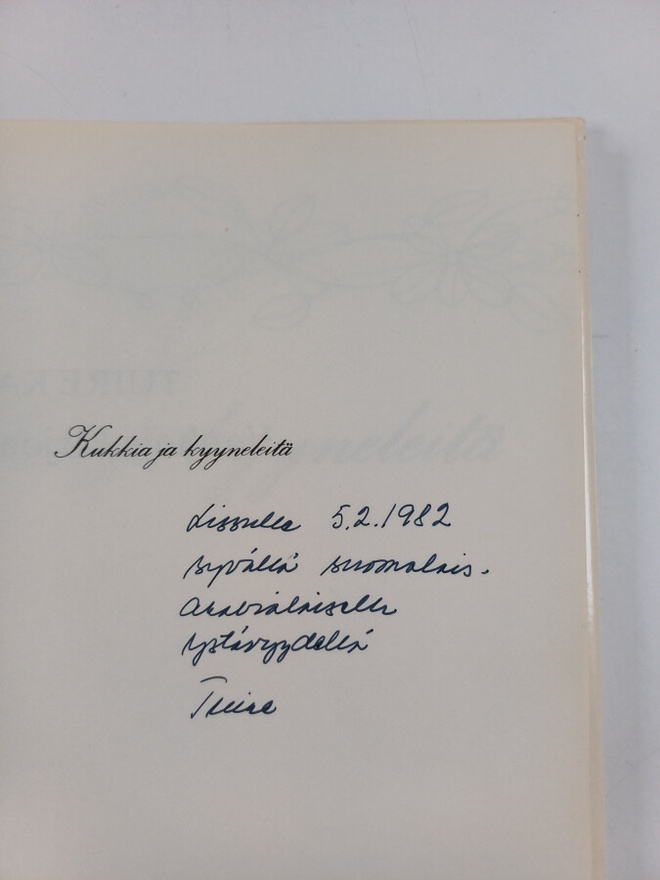 Kukkia ja kyyneleitä
Lissulle 5.2.1982
syvällä suomalais-
arabialaisella
ystävyydellä
Tuire